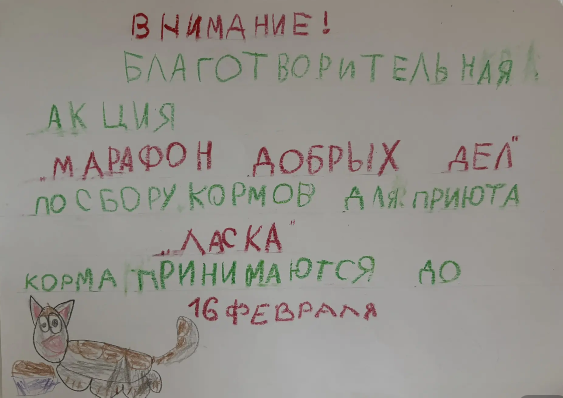 ВНИМАНИЕ!
БЛАГОТВОРИТЕЛЬНАЯ
АКЦИЯ
„МАРАФОН ДОБРЫХ ДЕЛ"
ПО СБОРУ КОРМОВ ДЛЯ ПРИЮТА
„ЛАСКА"
КОРМА ПРИНИМАЮТСЯ ДО
16 ФЕВРАЛЯ